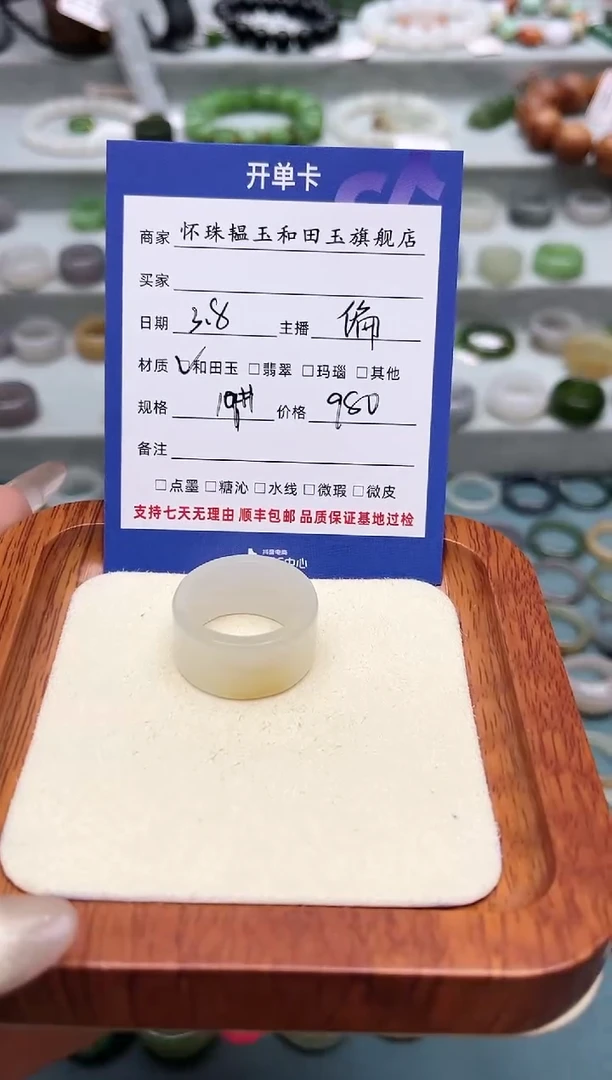 开单卡
商家 怀珠韫玉和田玉旗舰店
买家
日期 3.8 主播
材质 ☑和田玉 □翡翠 □玛瑙 □其他
规格 19# 价格 980
备注
□点墨 □糖沁 □水线 □微瑕 □微皮
支持七天无理由 顺丰包邮 品质保证基地过检
抖音电商
中心